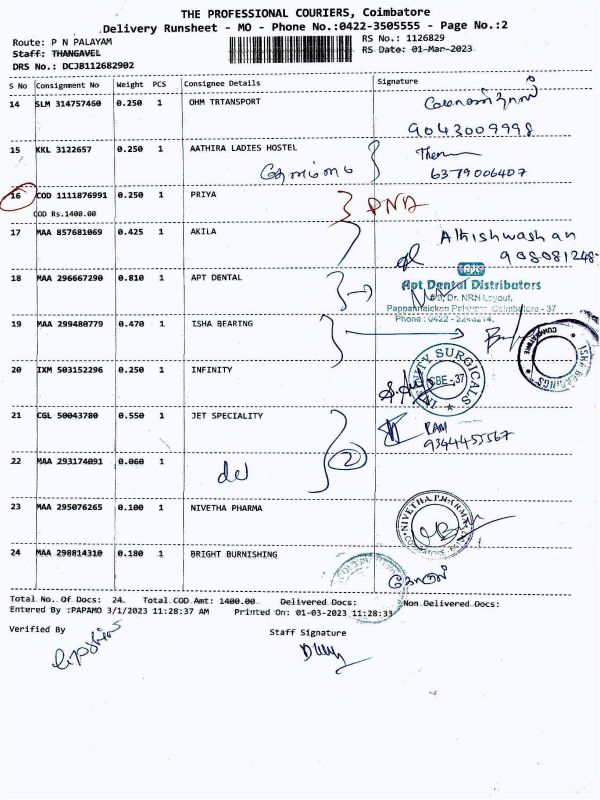 THE PROFESSIONAL COURIERS, Coimbatore
Delivery Runsheet - MO - Phone No.:0422-3505555 - Page No.:2
Route: P N PALAYAM
RS No.: 1126829
Staff: THANGAVEL
RS Date: 01-Mar-2023
DRS No.: DCJ8112682902
S No Consignment No Weight PCS Consignee Details Signature
14 SLM 314757460 0.250 1 OHM TRTANSPORT
9043009998
15 KKL 3122657 0.250 1 AATHIRA LADIES HOSTEL
6379006407
16 COD 1111876991 0.250 1 PRIYA
COD Rs.1400.00
17 MAA 857681069 0.425 1 AKILA
18 MAA 296667290 0.810 1 APT DENTAL
APT
Apt Dental Distributors
Dr. NRN Layout,
Pappanaicken Palayam, Coimbatore - 37
19 MAA 299480779 0.470 1 ISHA BEARING
20 IXM 503152296 0.250 1 INFINITY
INFINITY SURGICALS
CBE-37
21 CGL 50043780 0.550 1 JET SPECIALITY
RAM
9344455567
22 MAA 293174091 0.060 1
2
23 MAA 295076265 0.100 1 NIVETHA PHARMA
24 MAA 298814310 0.180 1 BRIGHT BURNISHING
Total No. Of Docs: 24. Total COD Amt: 1400.00 Delivered Docs: Non Delivered Docs:
Entered By :PAPAMO 3/1/2023 11:28:37 AM Printed On: 01-03-2023 11:28:33
Verified By
Staff Signature